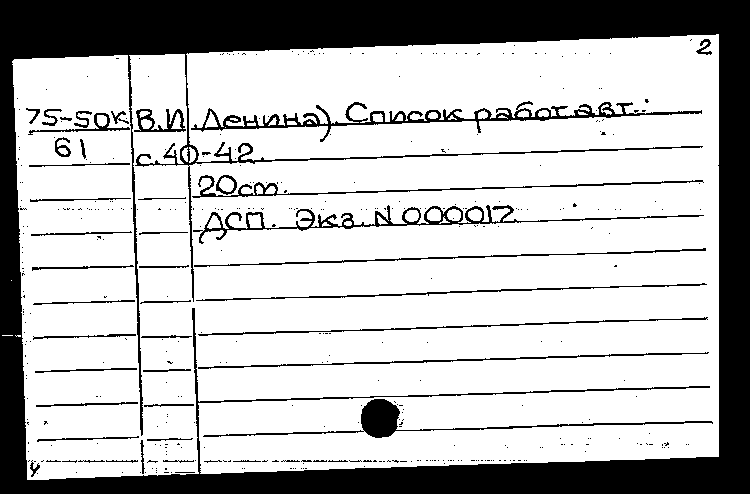 2
75-50к В.И. Ленина). Список работ авт.:
61 с.40-42.
20см.
ДСП. Экз. N 000012